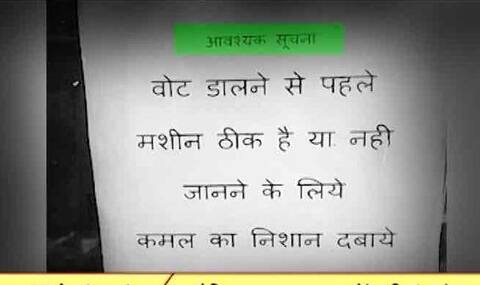 आवश्यक सूचना
वोट डालने से पहले
मशीन ठीक है या नही
जानने के लिये
कमल का निशान दबाये